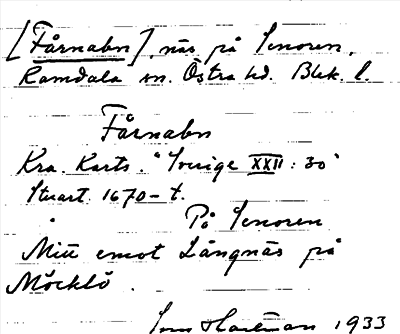 [Fårnabn], näs på Senoren,
Ramdala sn. Östra hd. Blek. l.
Fårnabn
Kra. Karts. "Sverige XXII : 30"
Stuart. 1670-t.
På Senoren
Mitt emot Långnäs på
Möcklö.
Hartman 1933